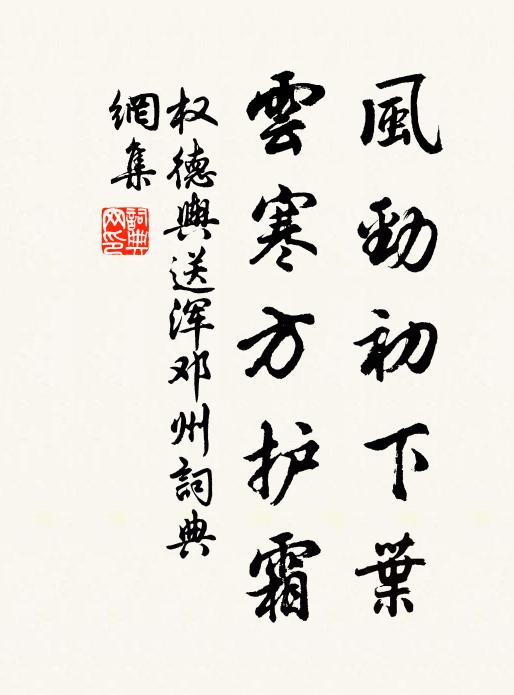 風勁初下葉
雲寒方护霜
权德輿送浑邓州詞典
網集
詞典
网印